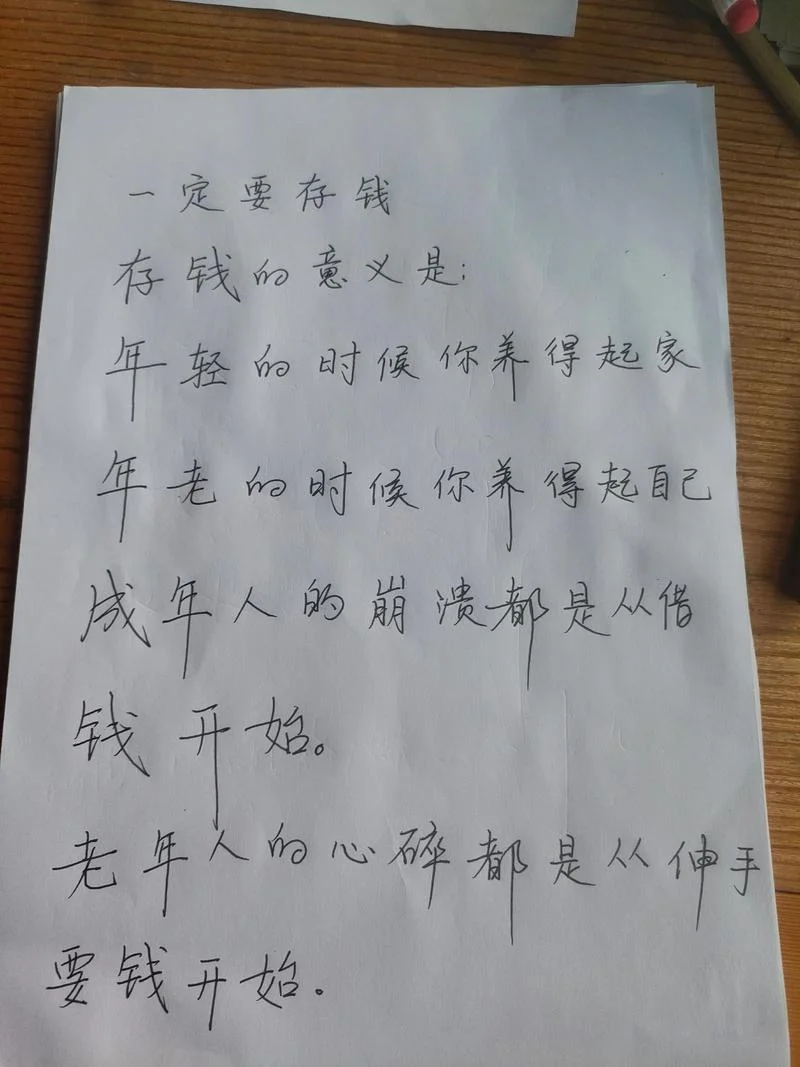 一定要存钱
存钱的意义是:
年轻的时候你养得起家
年老的时候你养得起自己
成年人的崩溃都是从借
钱开始。
老年人的心碎都是从伸手
要钱开始。